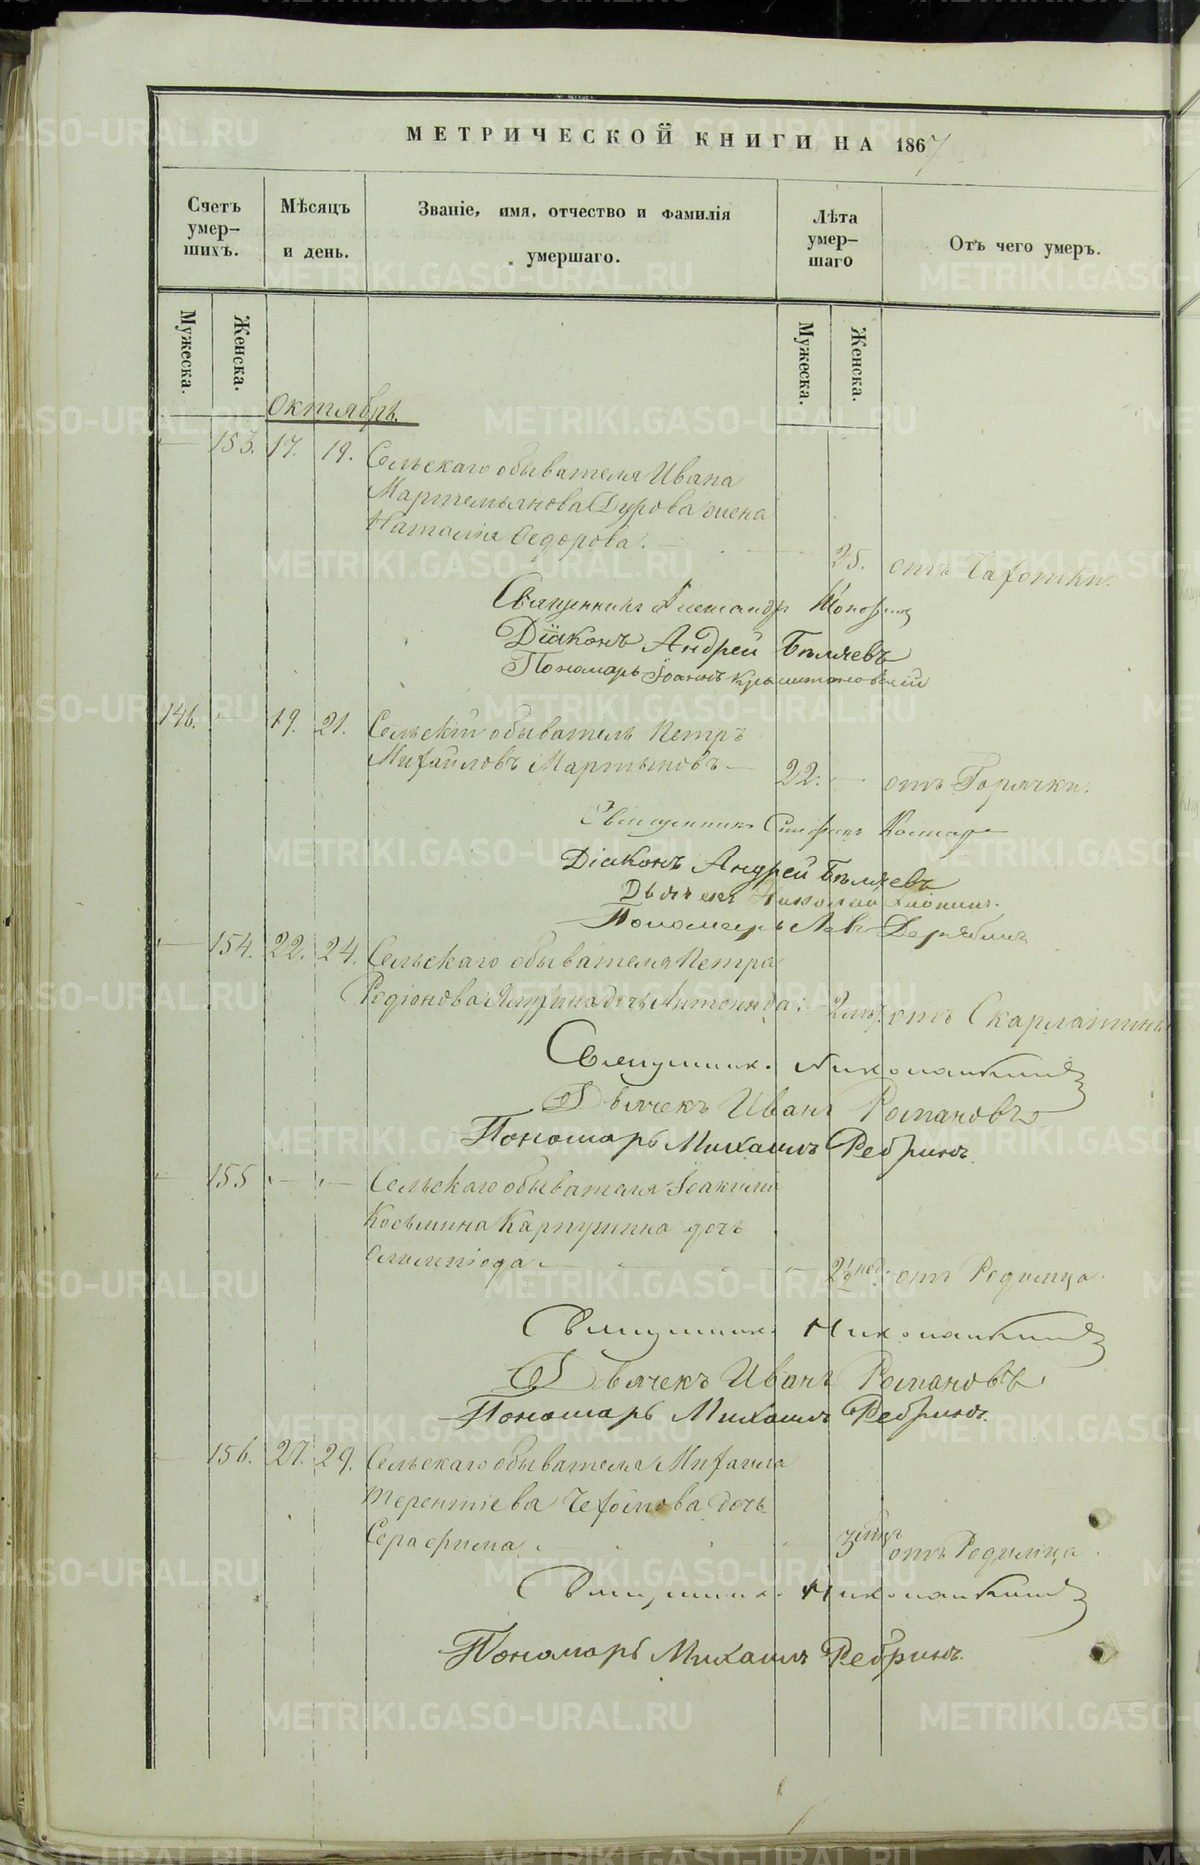 МЕТРИЧЕСКОЙ КНИГИ НА 1867
Счетъ умер-шихъ.
Мѣсяцъ и день.
Званіе, имя, отчество и фамилія умершаго.
Лѣта умер-шаго
Отъ чего умеръ.
Мужеска.
Женска.
Мужеска.
Женска.
Октябрь.
— 153. 17. 19. Сельскаго обывателя Ивана
Мартемьянова Дурова жена
Наталія Ѳедорова. — 25. отъ Чахотки.
Священникъ Александръ
Діаконъ Андрей Бѣляевъ
Пономарь Іоаннъ
146. — 19. 21. Сельскій обыватель Петръ
Михайловъ Мартыновъ — 22. — отъ Горячки.
Священникъ
Діаконъ Андрей Бѣляевъ
Дьячекъ Николай
Пономарь Левъ Дерябинъ
— 154. 22. 24. Сельскаго обывателя Петра
Родіонова дочь Антонида: 2 отъ Скарлатины
Священникъ
Дьячекъ Иванъ Романовъ
Пономарь Михаилъ Ребринъ.
— 155 „— „— Сельскаго обывателя Іоакима
Косьмина Карпушина дочь
Олимпіода — — 2½ нед. отъ Родимца.
Священникъ
Дьячекъ Иванъ Романовъ
Пономарь Михаилъ Ребринъ.
— 156. 27. 29. Сельскаго обывателя Михаила
Терентіева дочь
Серафима. отъ Родимца.
Священникъ
Пономарь Михаилъ Ребринъ.
METRIKI.GASO-URAL.RU